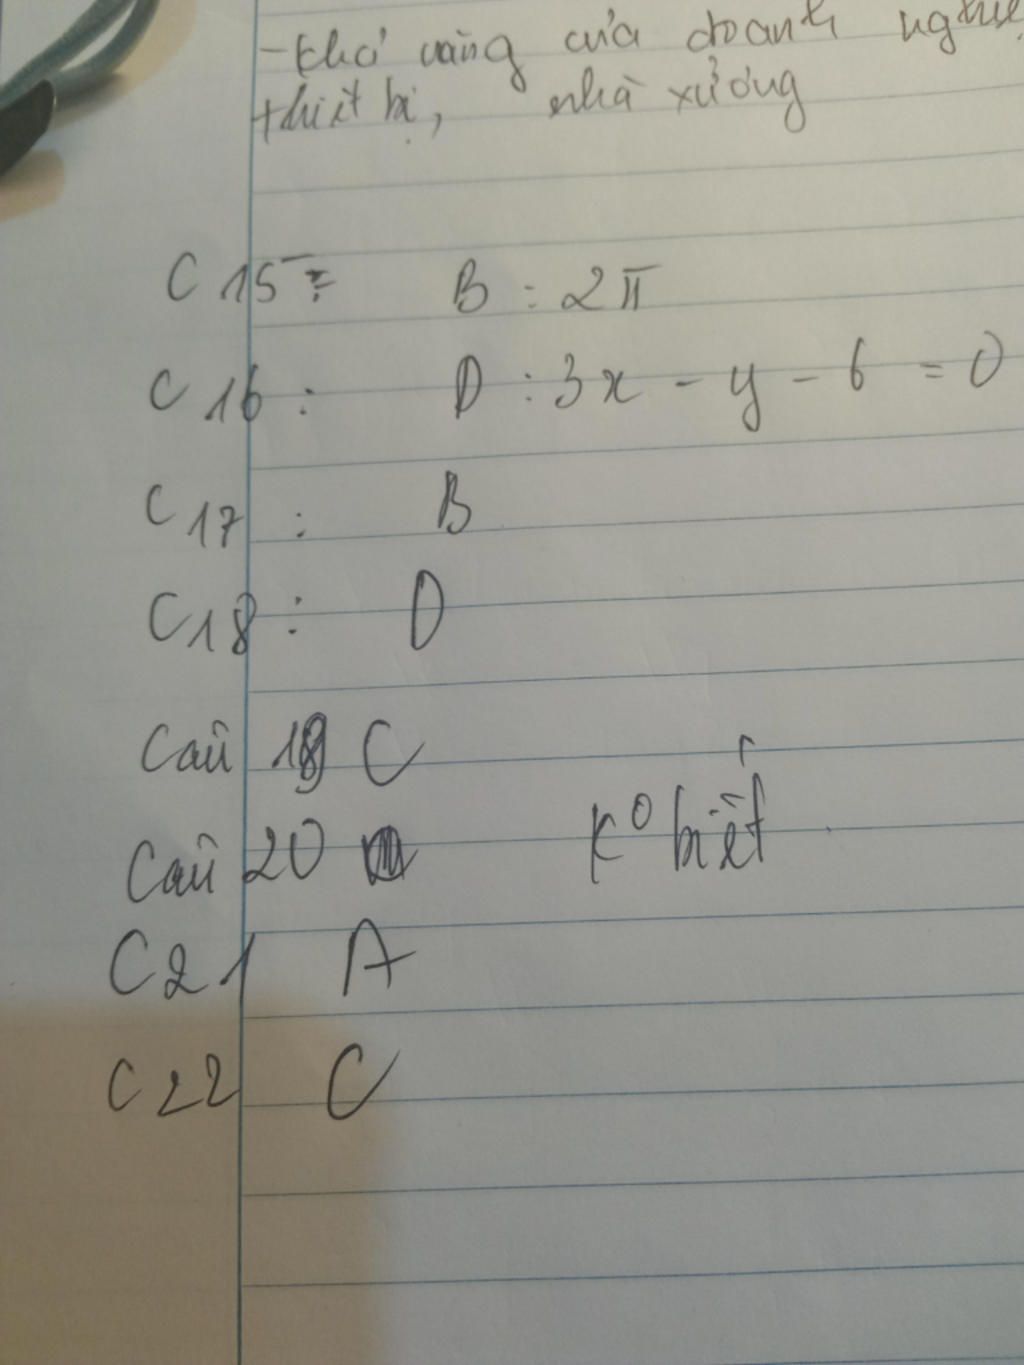 - khả năng của doanh
thiết bị, nhà xưởng
C 15 : B : 2π
C 16 : D : 3x - y - 6 = 0
C 17 : B
C 18 : D
Câu 19 C
Câu 20 K° biết
C 21 A
C 22 C